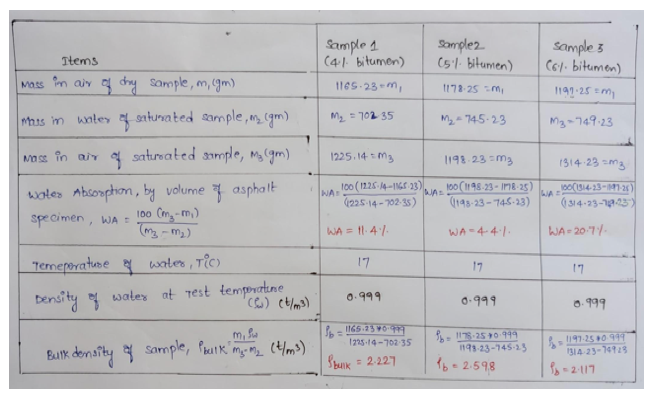 Items
Sample 1
(4% bitumen)
Sample 2
(5% bitumen)
Sample 3
(6% bitumen)
Mass in air of dry sample, m₁(gm)
1165.23=m₁
1178.25=m₁
1197.25=m₁
Mass in water of saturated sample, m₂(gm)
M₂=702.35
M₂=745.23
M₃=749.23
Mass in air of saturated sample, M₃(gm)
1225.14=m₃
1198.23=m₃
1314.23=m₃
Water Absorption, by volume of asphalt
specimen, WA = 100(m₃-m₁)/(m₃-m₂)
WA=100(1225.14-1165.23)/(1225.14-702.35)
WA=100(1198.23-1178.25)/(1198.23-745.23)
WA=100(1314.23-1197.25)/(1314.23-749.23)
WA = 11.4%
WA = 4.4%
WA=20.7%
Temeperature of water, T(°C)
17
17
17
Density of water at Test temperature
(ρω) (t/m³)
0.999
0.999
0.999
Bulk density of sample, ρbulk = m₁ρω/m₃-m₂ (t/m³)
ρb = 1165.23*0.999/1225.14-702.35
ρb = 1178.25*0.999/1198.23-745.23
ρb = 1197.25*0.999/1314.23-749.23
ρbulk = 2.227
ρb = 2.598
ρb = 2.117